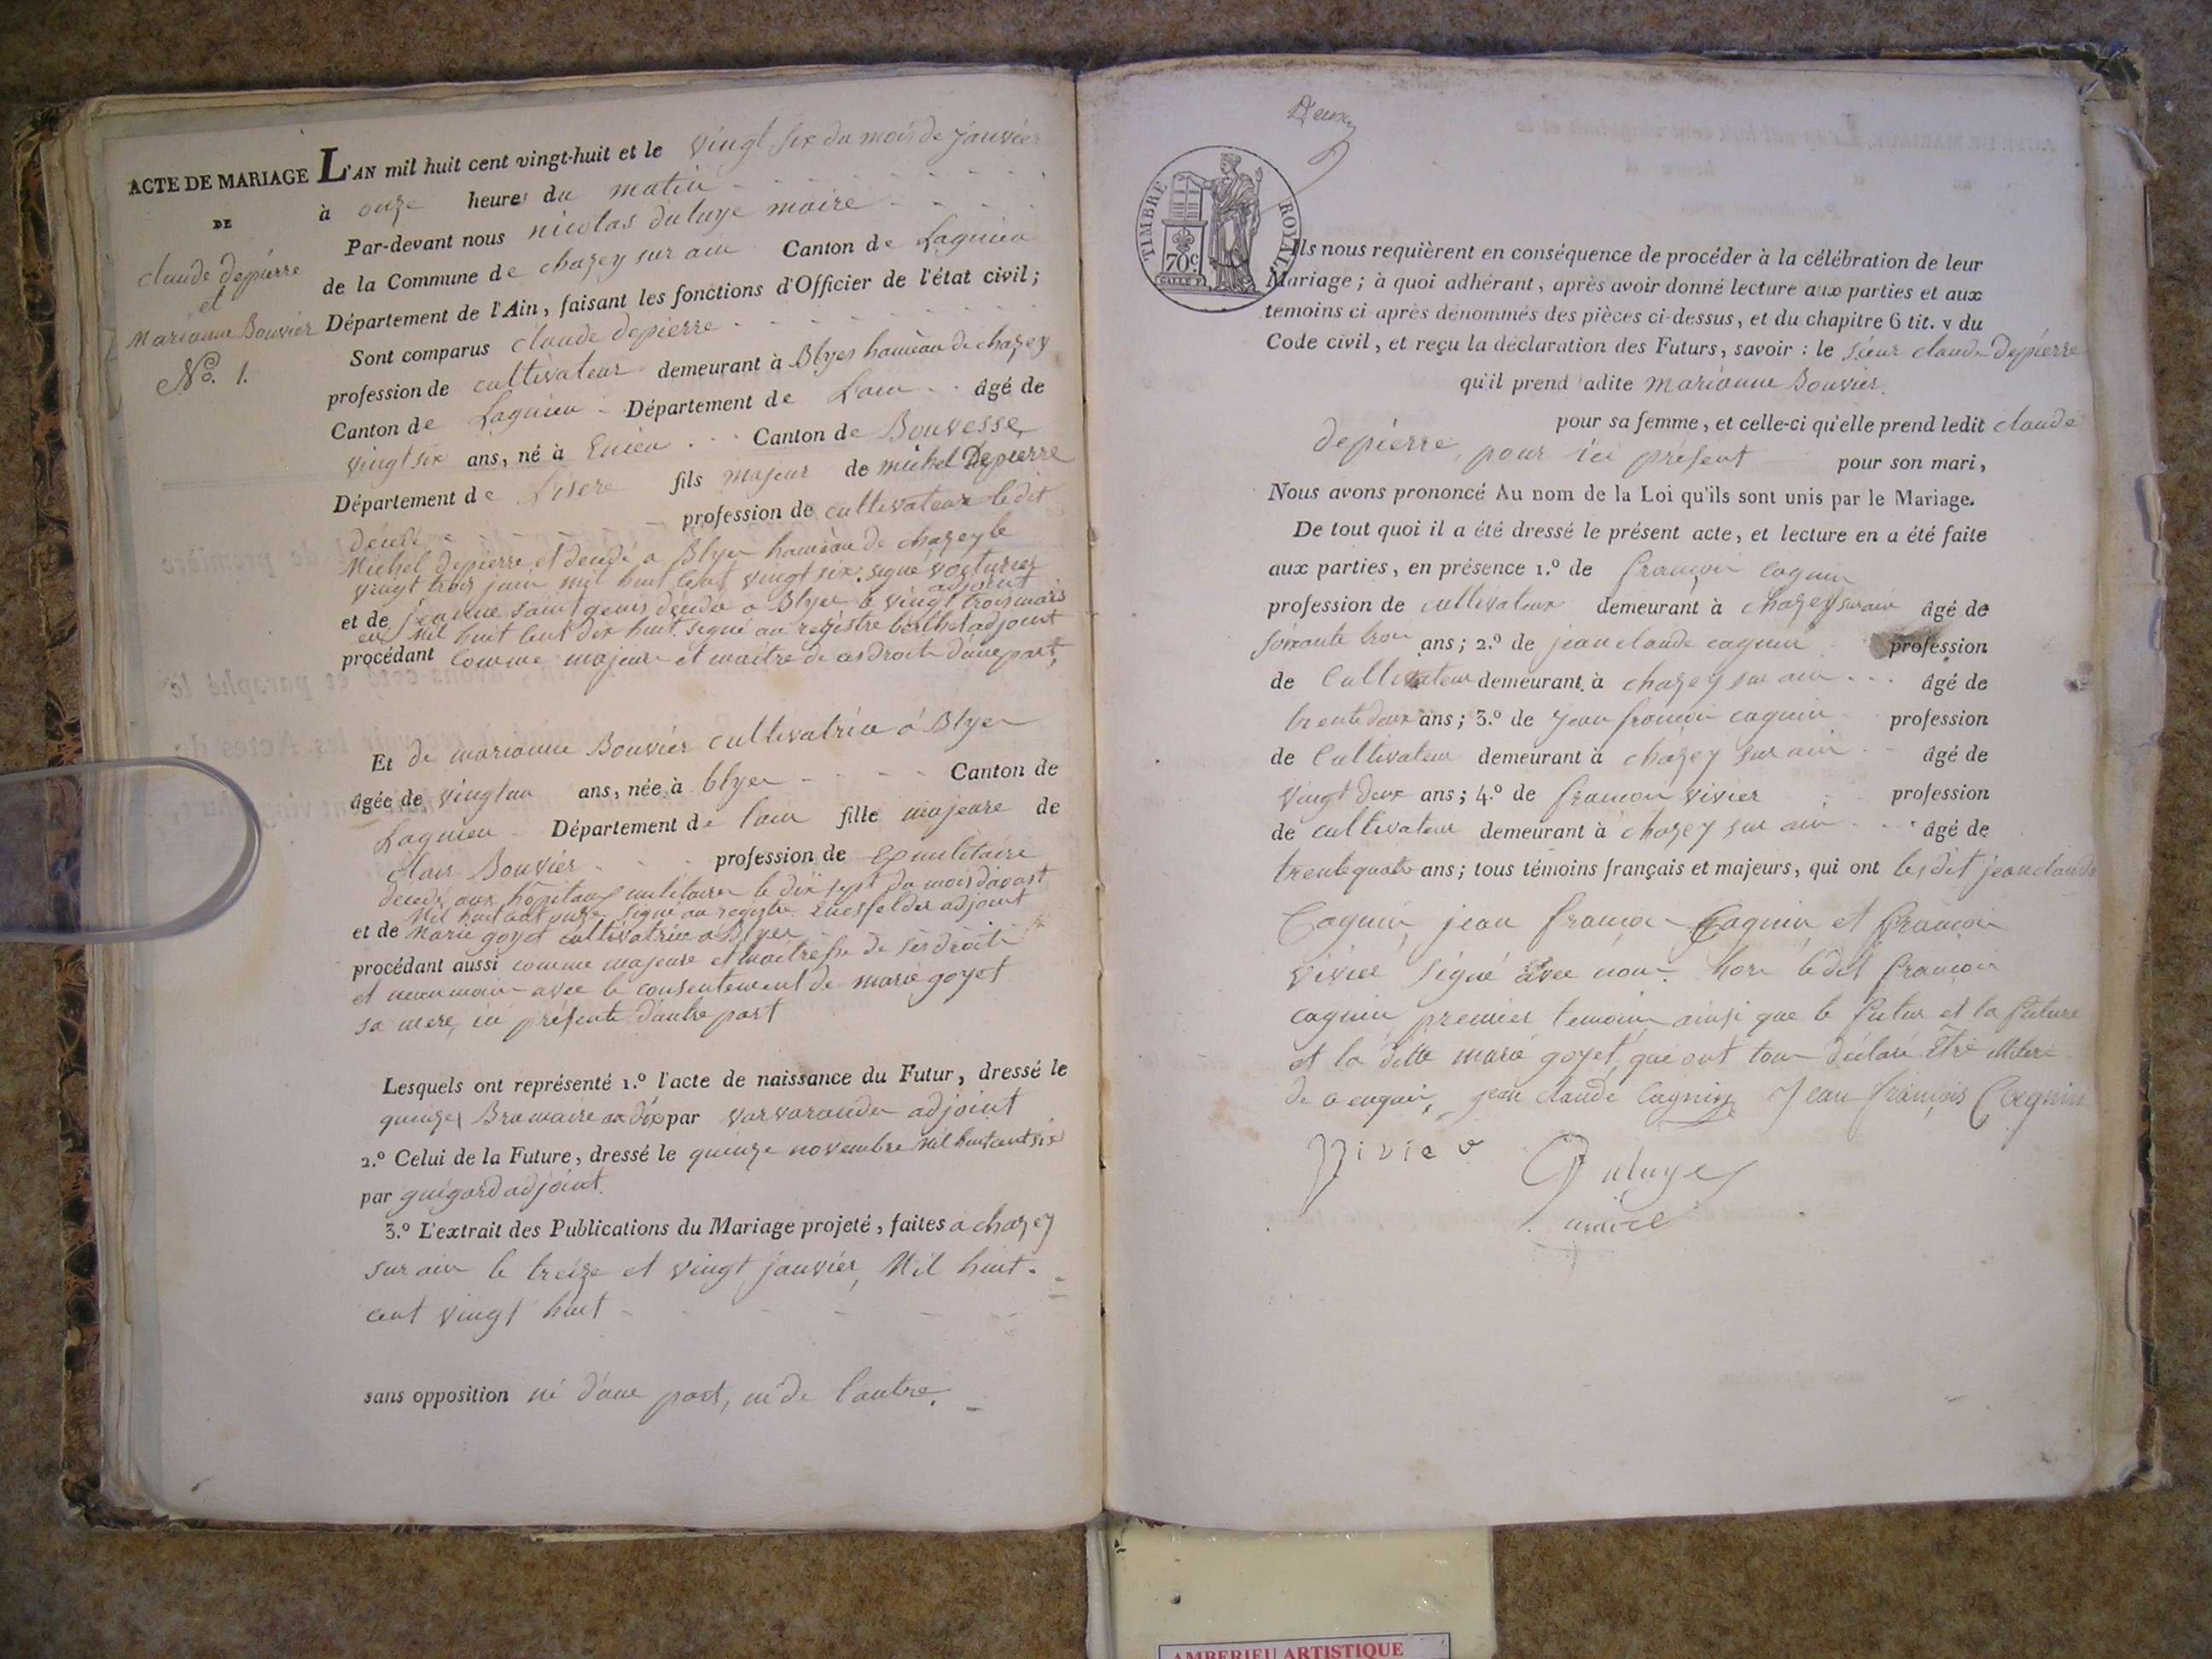 ACTE DE MARIAGE
DE
claude depierre
et
Marianne Bouvier
No. 1.
L'AN mil huit cent vingt-huit et le vingt six du mois de janvier
à onze heures du matin
Par-devant nous nicolas duluye maire
de la Commune de chazey sur ain Canton de Lagnieu
Département de l'Ain, faisant les fonctions d'Officier de l'état civil;
Sont comparus claude depierre
profession de cultivateur demeurant à Blyes hameau de chazey
Canton de Lagnieu Département de L'ain âgé de
vingt six ans, né à Enieu Canton de Bouvesse
Département de L'isere fils majeur de michel Depierre
décédé profession de cultivateur ledit
Michel depierre et decedé a Blyes hameau de chazey le
vingt trois juin mil huit cent vingt six. signé voiturier
adjoint
et de jeanne saint genis décédée a Blyes le vingt trois mars
en Mil huit cent dix huit. signé au registre berthet adjoint
procédant comme majeur et maitre de ces droits d'une part,
Et de marianne Bouvier cultivatrice à Blyes
âgée de vingt un ans, née à blyes Canton de
Lagnieu Département de l'ain fille majeure de
clair Bouvier profession de Exmilitaire
décédé aux hôpitaux militaires le dix sept du mois d'avout
Mil huit cent onze signé au registre adjoint
et de Marie goyet cultivatrice a Blyes
procédant aussi comme majeure et maîtresse de ses droits
et neanmoins avec le consentement de marie goyet
sa mere, ici présente d'autre part
Lesquels ont représenté 1.º l'acte de naissance du Futur, dressé le
quinze Brumaire an dix par varvarandes adjoint
2.º Celui de la Future, dressé le quinze novembre Mil huit cent six
par guigard adjoint.
3.º L'extrait des Publications du Mariage projeté, faites a chazey
sur ain le treize et vingt janvier, Mil huit.
cent vingt huit
sans opposition ni d'une part, ni de l'autre.
Deux
TIMBRE ROYAL
70c
Ils nous requièrent en conséquence de procéder à la célébration de leur
Mariage; à quoi adhérant, après avoir donné lecture aux parties et aux
témoins ci-après dénommés des pièces ci-dessus, et du chapitre 6 tit. v du
Code civil, et reçu la déclaration des Futurs, savoir : le sieur claude Depierre
qu'il prend ladite marianne Bouvier.
pour sa femme, et celle-ci qu'elle prend ledit claude
depierre, pour ici présent pour son mari,
Nous avons prononcé Au nom de la Loi qu'ils sont unis par le Mariage.
De tout quoi il a été dressé le présent acte, et lecture en a été faite
aux parties, en présence 1.º de françois cognin
profession de cultivateur demeurant à chazey sur ain âgé de
soixante trois ans; 2.º de jean claude cagnin profession
de Cultivateur demeurant à chazey sur ain âgé de
trente deux ans; 3.º de jean françois cagnin profession
de Cultivateur demeurant à chazey sur ain âgé de
vingt deux ans; 4.º de françois vivier profession
de cultivateur demeurant à chazey sur ain âgé de
trente quatre ans; tous témoins français et majeurs, qui ont lesdit jean claude
Cognin, jean françois Cagnin et françois
vivier signé avec nous. hors ledit françois
cagnin premier temoin ainsi que le futur et la future
et la ditte marie goyet, qui ont tous déclaré être illiteré
de a enquis, jean claude Cagnin Jean françois Cognin
Vivier Duluye
maire
AMBERIEU ARTISTIQUE